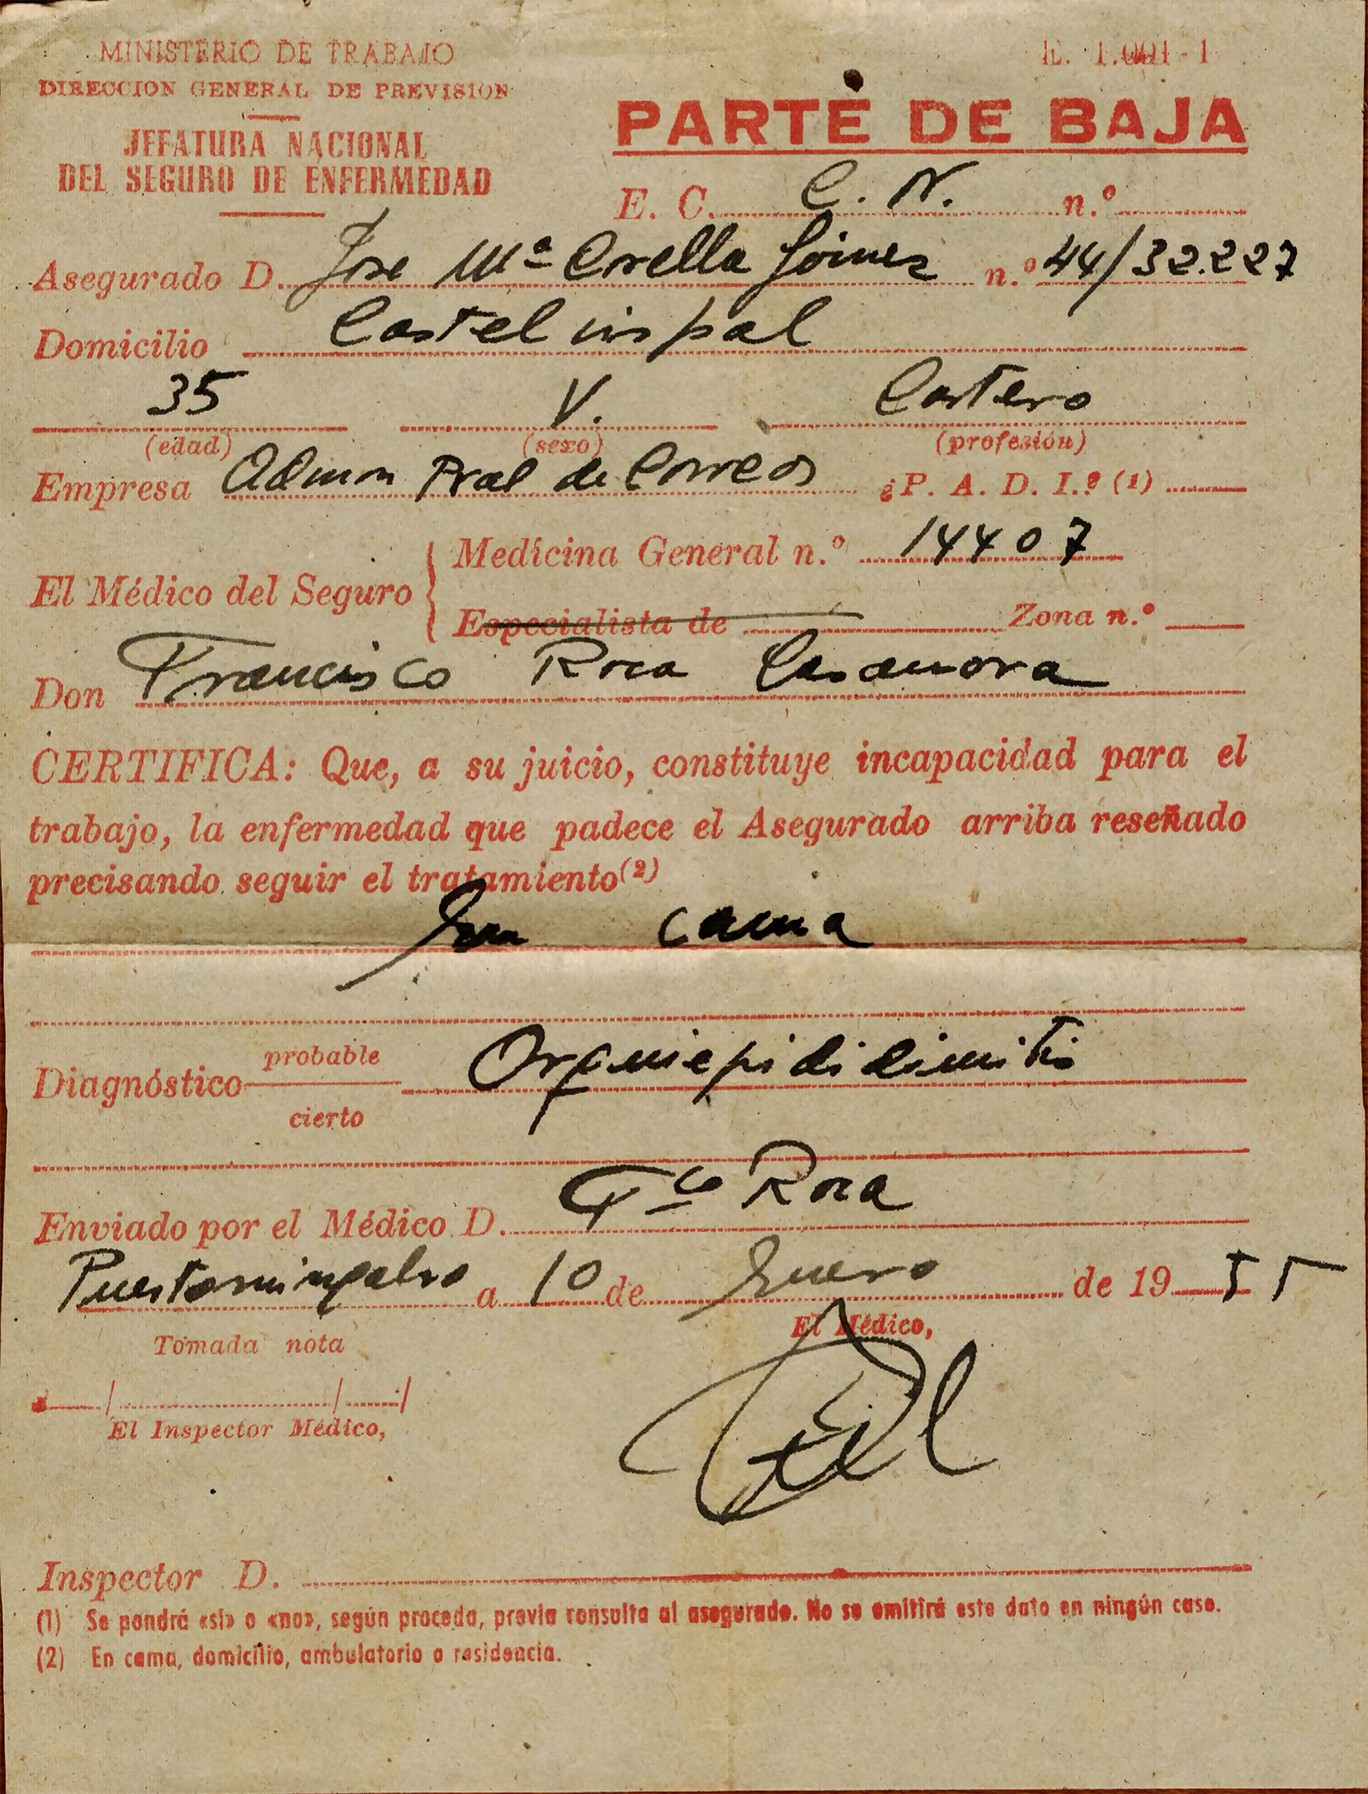 MINISTERIO DE TRABAJO
DIRECCION GENERAL DE PREVISION
JEFATURA NACIONAL
DEL SEGURO DE ENFERMEDAD
E. 1.001-1
PARTE DE BAJA
E. C. C. N. n.º
Asegurado D. Jose Mª Corella Gómez n.º 44/32.227
Domicilio Castelvispal
35 V. Cartero
(edad) (sexo) (profesión)
Empresa Admon Pral de Correos ¿P. A. D. I.? (1)
El Médico del Seguro { Medicina General n.º 14407
Especialista de Zona n.º
Don Francisco Roca Casanova
CERTIFICA: Que, a su juicio, constituye incapacidad para el
trabajo, la enfermedad que padece el Asegurado arriba reseñado
precisando seguir el tratamiento(2)
En cama
Diagnóstico probable Orquiepididimitis
cierto
Enviado por el Médico D. Fco Roca
Puertomingalvo a 10 de Enero de 19 55
Tomada nota
El Médico,
El Inspector Médico,
Inspector D.
(1) Se pondrá «si» o «no», según proceda, previa consulta al asegurado. No se emitirá este dato en ningún caso.
(2) En cama, domicilio, ambulatorio o residencia.